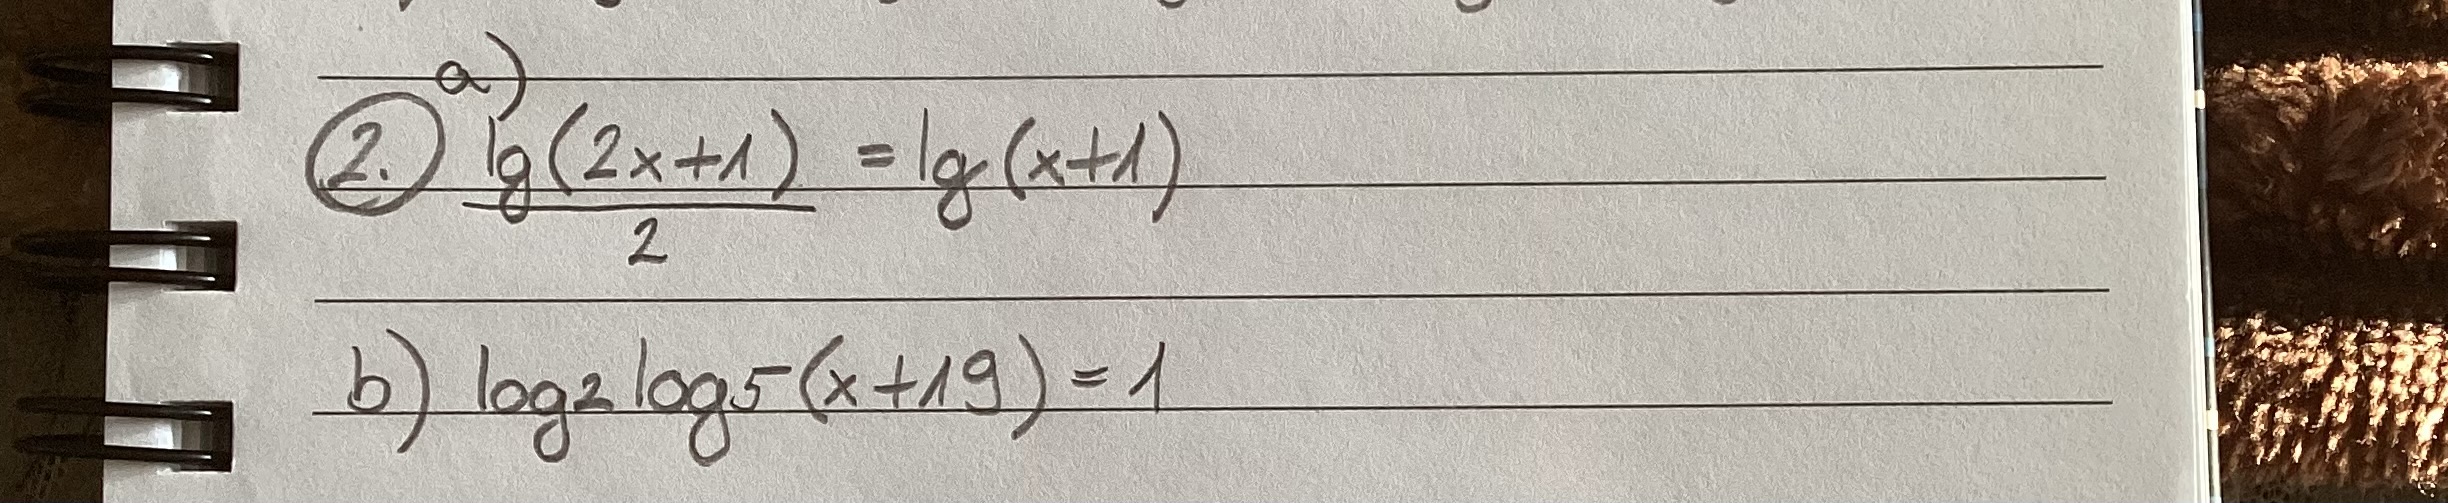 a)
2. lg(2x+1) = lg(x+1)
2
b) log2 log5 (x+19) = 1